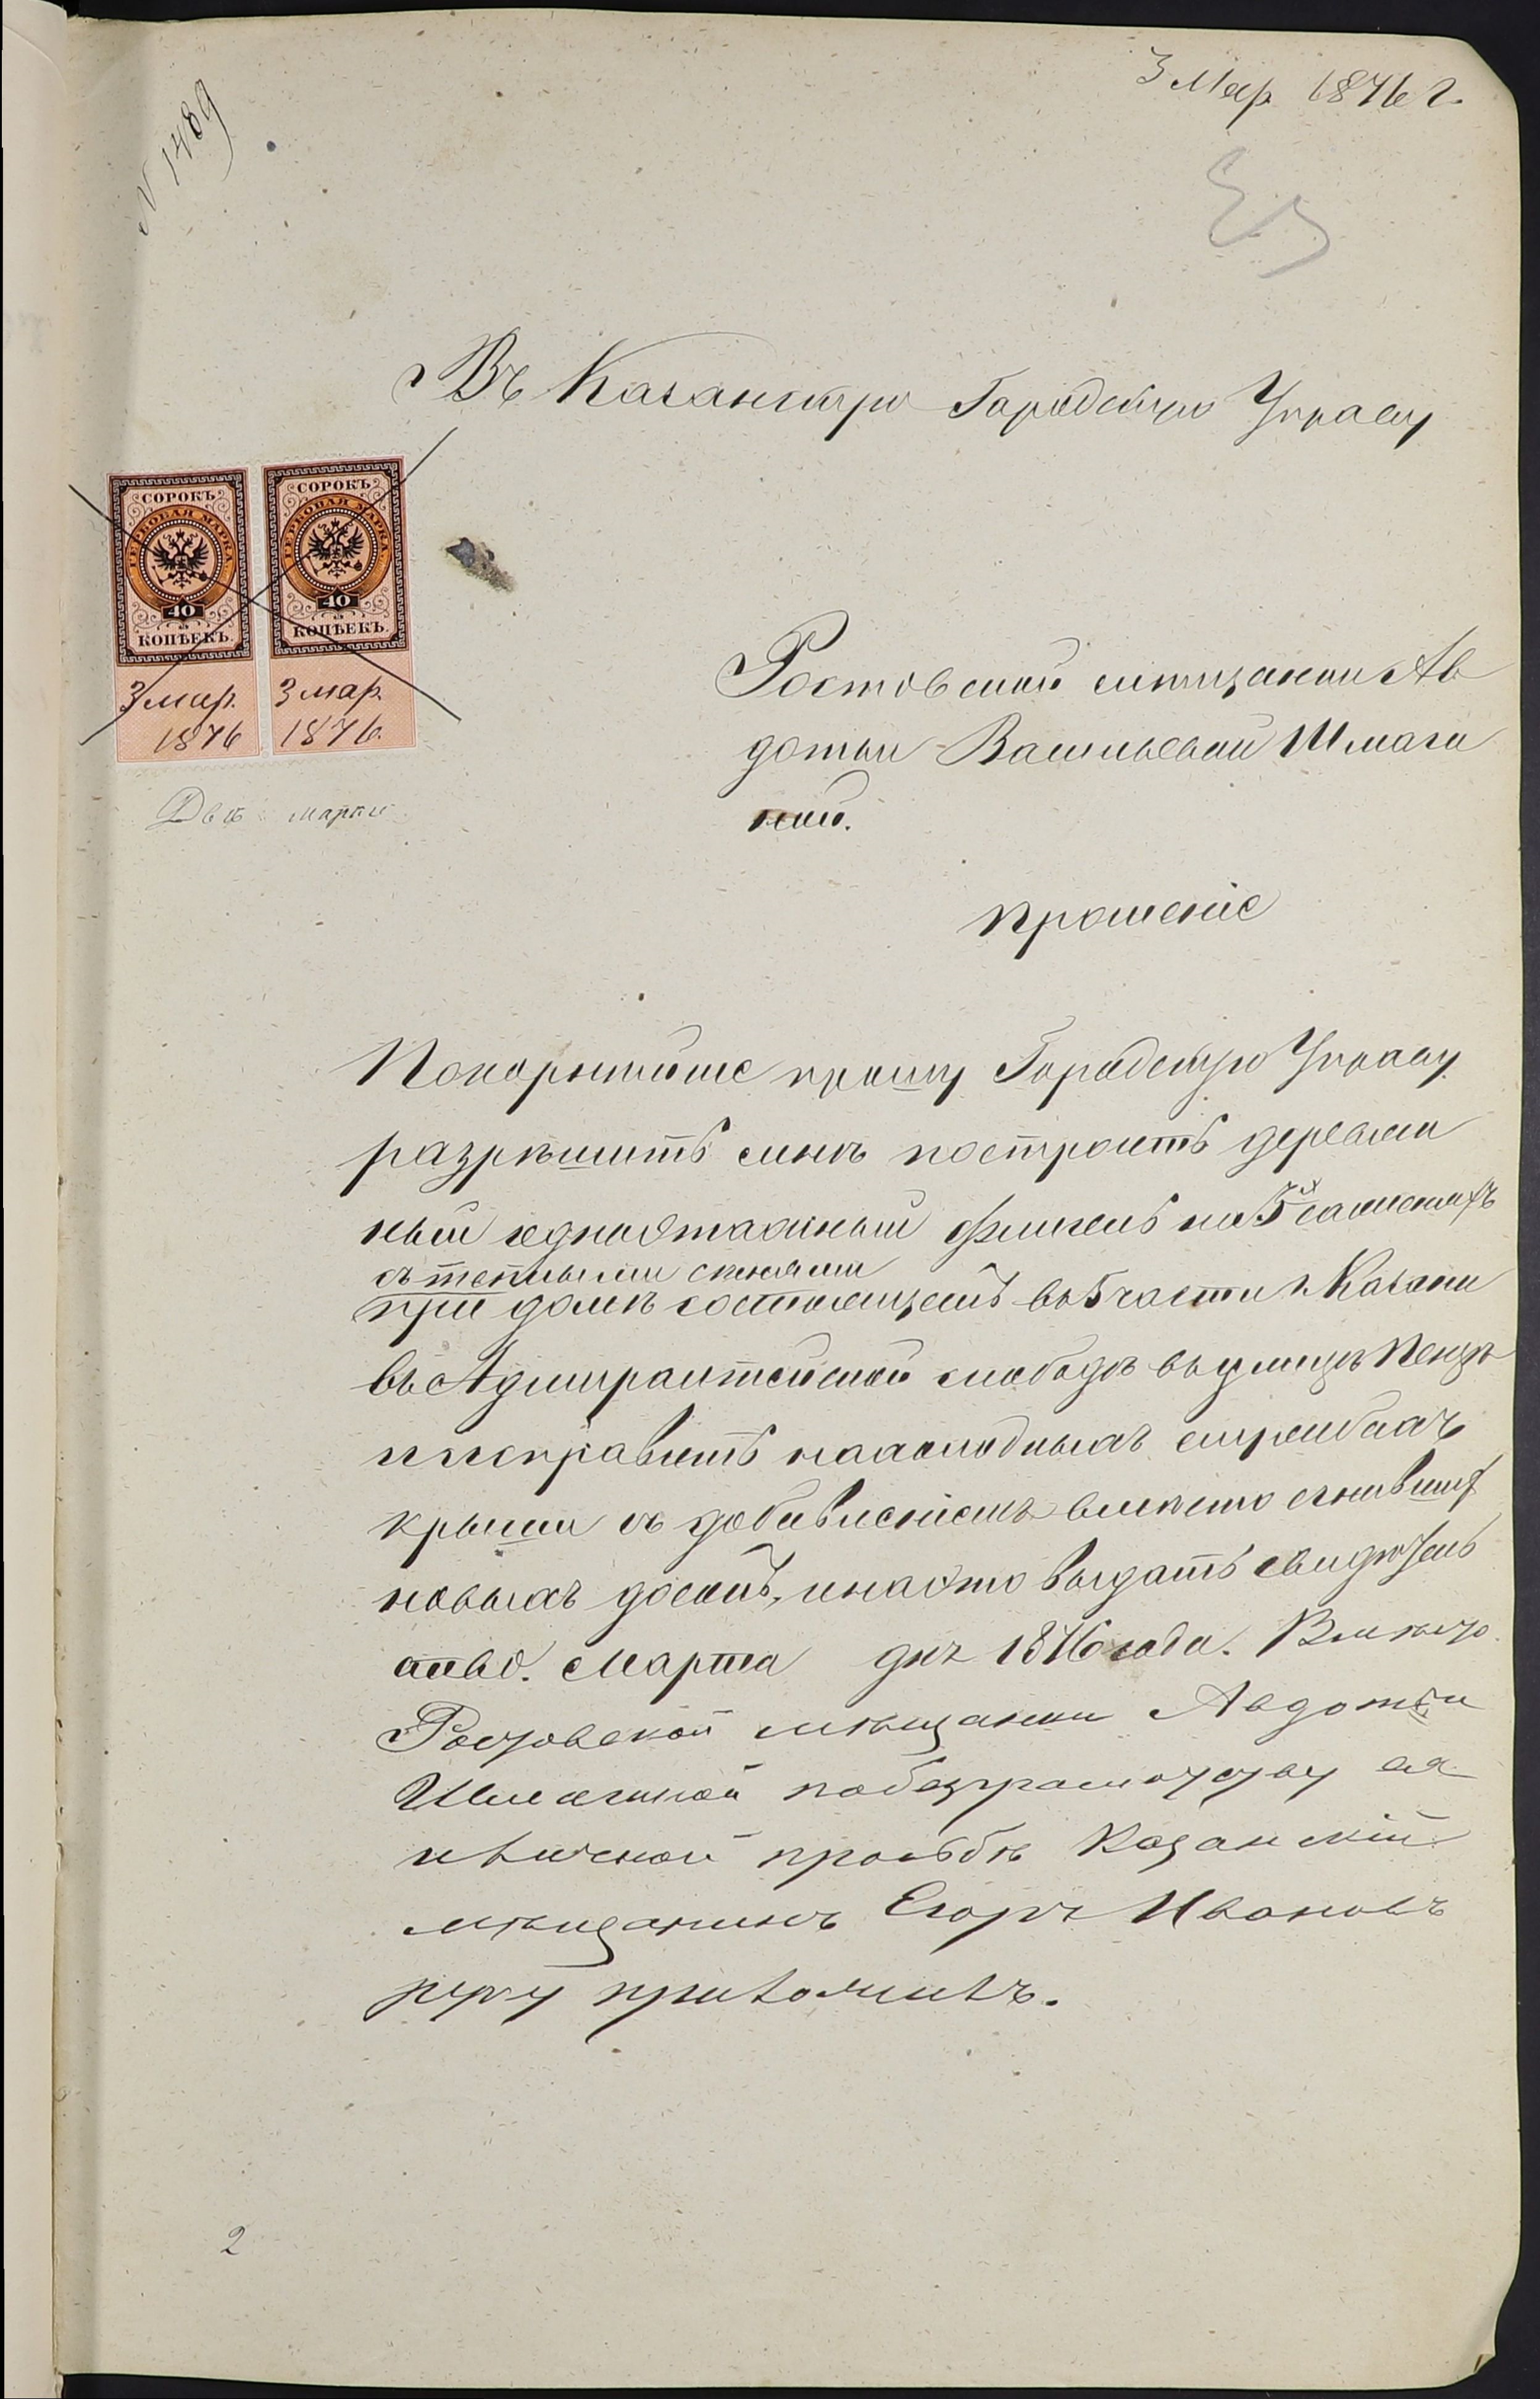 3 Мар 1876 г.
N 1489
Въ Казанскую Городскую Управу
СОРОКЪ
ГЕРБОВАЯ МАРКА
40
КОПѢЕКЪ.
3 мар.
1876
СОРОКЪ
ГЕРБОВАЯ МАРКА
40
КОПѢЕКЪ.
3 мар.
1876.
Двѣ марки
Ростовской мѣщанки Ав
дотьи Васильевой Шмаги
ной.
прошеніе
Покорнѣйше прошу Городскую Управу
разрѣшить мнѣ построить деревян
ный одноэтажный флигель на 5
съ теплыми сѣнями
при домѣ состоящемъ въ 5 части г. Казани
въ Адмиралтейской слободѣ въ улицѣ
и исправить на холодныхъ службахъ
крыши съ добавленіемъ вмѣсто сгнившихъ
новыхъ досокъ, и на это выдать свидѣтель
ство. Марта дня 1876 года. Вмѣсто
Ростовской мѣщанки Авдотьи
Шмагиной по безграмотству ея
и личной просьбѣ Казанскій
мѣщанинъ Егоръ Ивановъ
руку приложилъ.
2